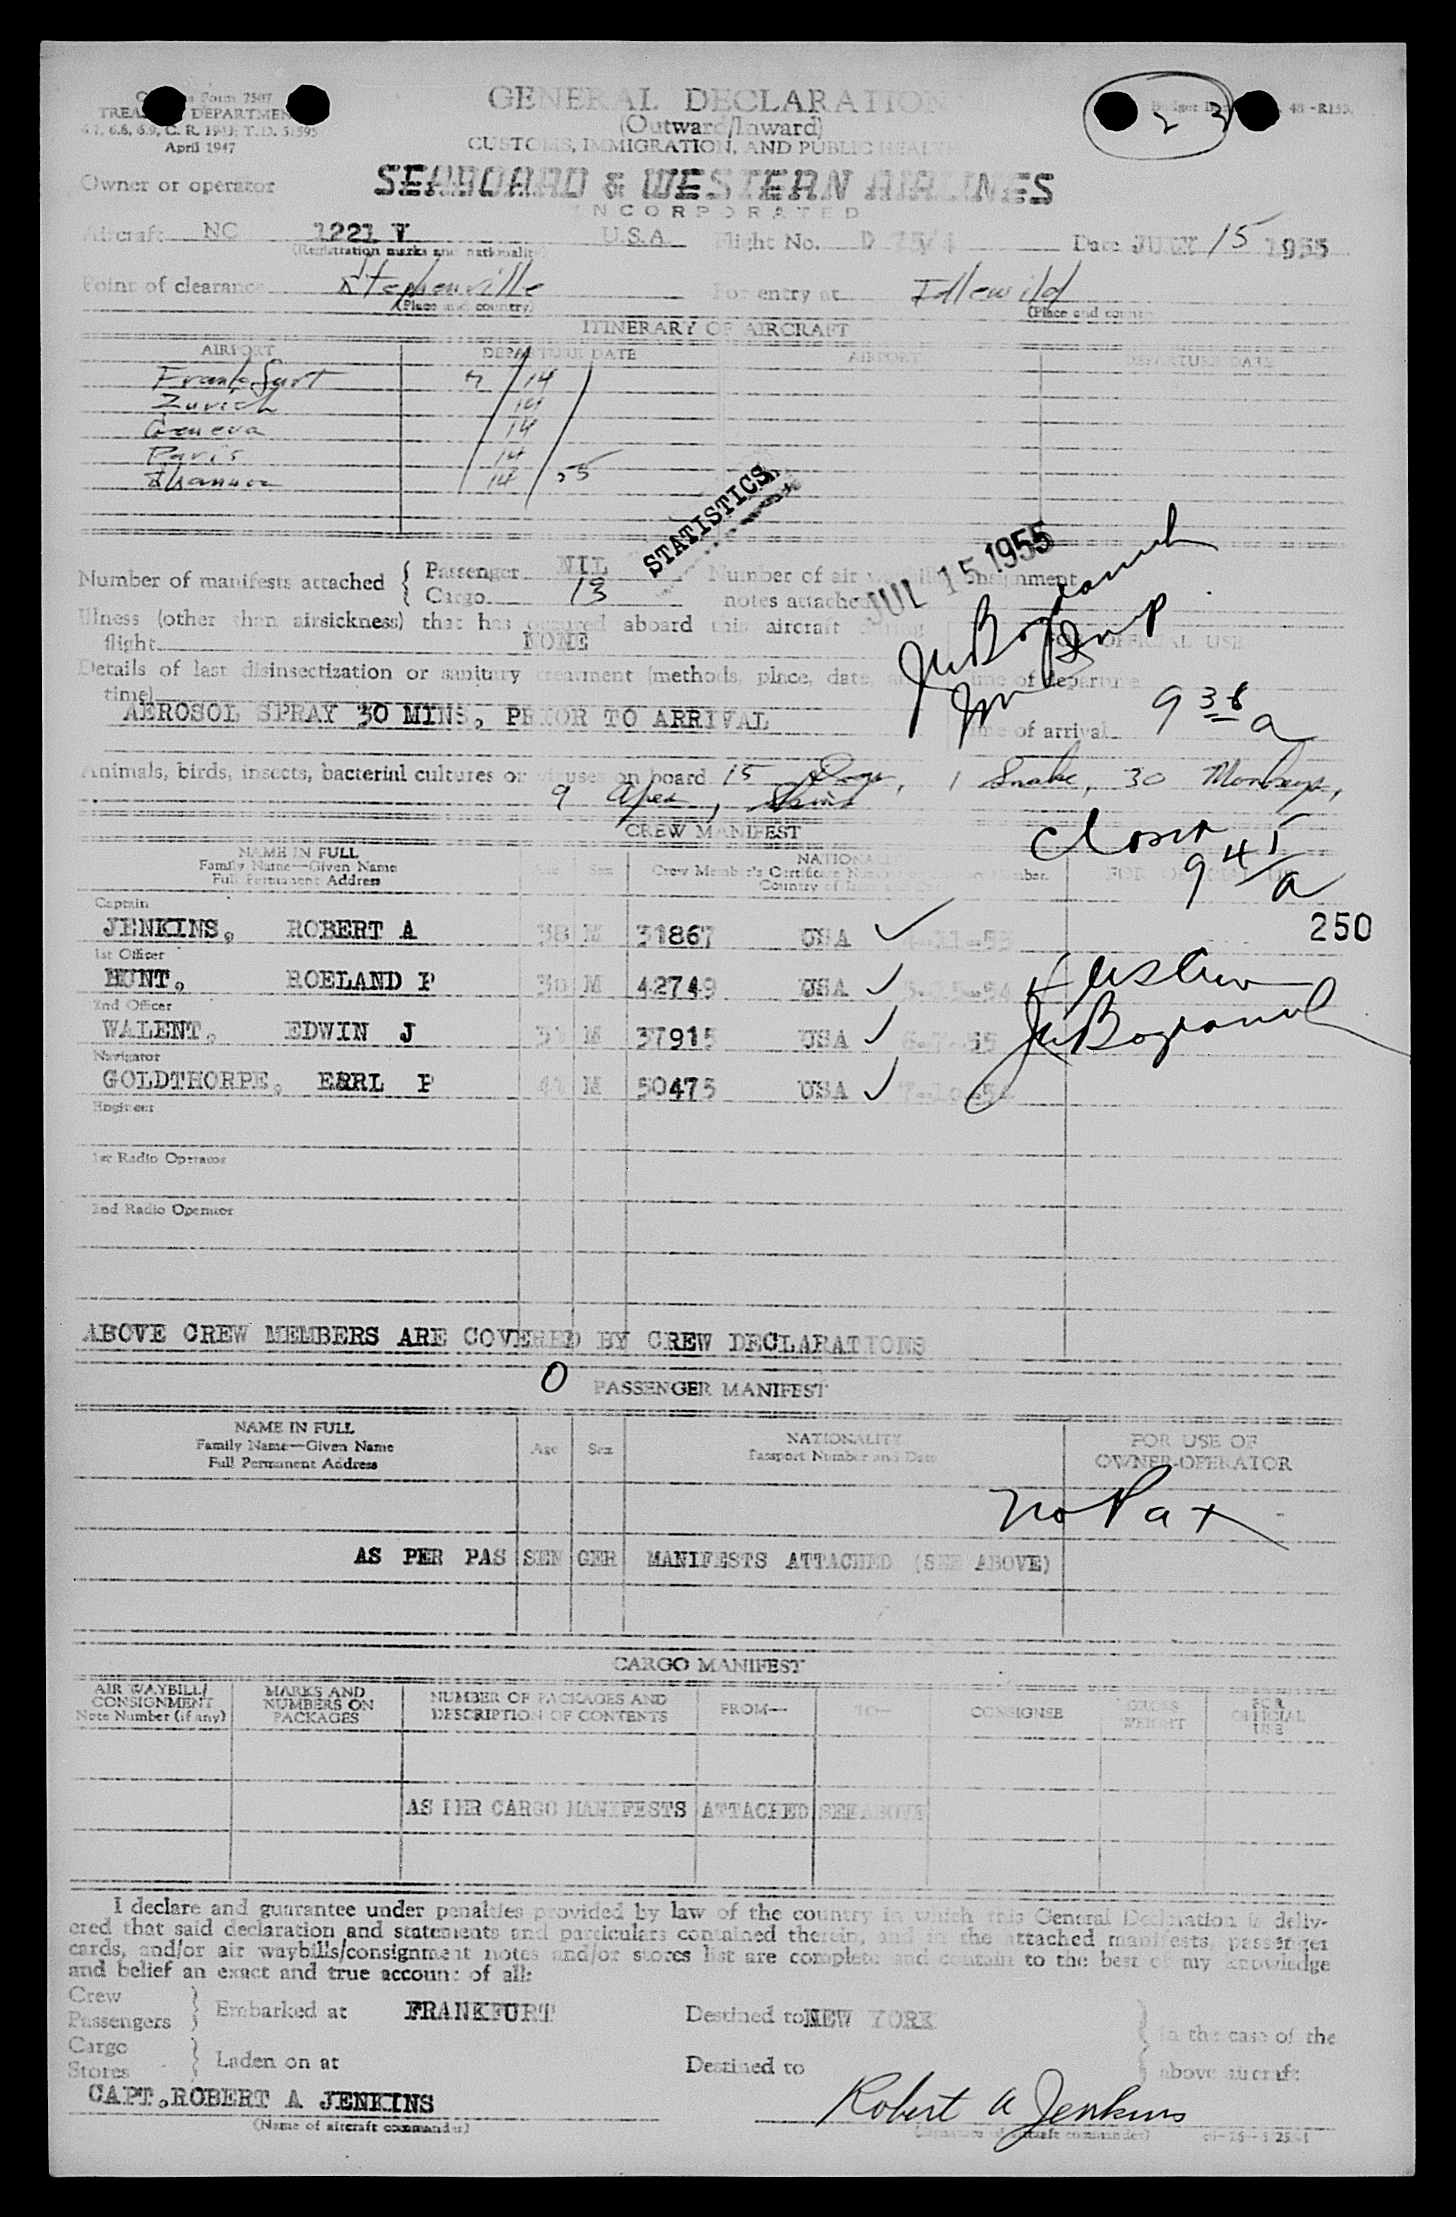 Form 7507
TREASURY DEPARTMENT
4.7, 6.6, 6.9, C. R. 1943; T.D. 51595
April 1947
GENERAL DECLARATION
(Outward/Inward)
CUSTOMS, IMMIGRATION, AND PUBLIC HEALTH
48-R153.
2 3
Owner or operator SEABOARD & WESTERN AIRLINES
INCORPORATED
Aircraft NC 1221 V U.S.A. Flight No. D Date JULY 15 1955
(Registration marks and nationality)
Point of clearance Stephenville For entry at Idlewild
(Place and country) (Place and country)
ITINERARY OF AIRCRAFT
AIRPORT DEPARTURE DATE AIRPORT DEPARTURE DATE
Frankfurt 7/14/
Zurich 14
Geneva 14
Paris 14
Shannon 14/55
STATISTICS
JUL 15 1955
Number of manifests attached { Passenger NIL Number of air waybills/consignment
Cargo 13 notes attached
Illness (other than airsickness) that has occured aboard this aircraft during
flight NONE
FOR OFFICIAL USE
Details of last disinsectization or sanitary treatment (methods, place, date, and
time)
AEROSOL SPRAY 30 MINS. PRIOR TO ARRIVAL
Time of departure
Time of arrival 9 38 a
Animals, birds, insects, bacterial cultures or viruses on board 15 Dogs, 1 Snake, 30 Monkeys,
9 Apes,
CREW MANIFEST
9 45 a
NAME IN FULL
Family Name—Given Name
Full Permanent Address
Age Sex
NATIONALITY
Crew Member's Certificate
FOR OFFICIAL USE
250
Captain
JENKINS, ROBERT A 38 M 31867 USA
1st Officer
HUNT, ROELAND P 30 M 42749 USA
2nd Officer
WALENT, EDWIN J M 37915 USA
Navigator
GOLDTHORPE, EARL P M 50475 USA
Engineer
1st Radio Operator
2nd Radio Operator
ABOVE CREW MEMBERS ARE COVERED BY CREW DECLARATIONS
0 PASSENGER MANIFEST
NAME IN FULL
Family Name—Given Name
Full Permanent Address
Age Sex
NATIONALITY
Passport Number and Date
FOR USE OF
OWNER-OPERATOR
No Pax
AS PER PAS SEN GER MANIFESTS ATTACHED (SEE ABOVE)
CARGO MANIFEST
AIR WAYBILL/
CONSIGNMENT
Note Number (if any)
MARKS AND
NUMBERS ON
PACKAGES
NUMBER OF PACKAGES AND
DESCRIPTION OF CONTENTS
FROM— TO— CONSIGNEE
GROSS
WEIGHT
FOR
OFFICIAL
USE
AS PER CARGO MANIFESTS ATTACHED SEE ABOVE
I declare and guarantee under penalties provided by law of the country in which this General Declaration is deliv-
ered that said declaration and statements and particulars contained therein, and in the attached manifests, passenger
cards, and/or air waybills/consignment notes and/or stores list are complete and contain to the best of my knowledge
and belief an exact and true account of all:
Crew
Passengers } Embarked at FRANKFURT Destined to NEW YORK } in the case of the
Cargo
Stores } Laden on at Destined to } above aircraft
CAPT. ROBERT A JENKINS Robert A Jenkins
(Name of aircraft commander) (Signature of aircraft commander)